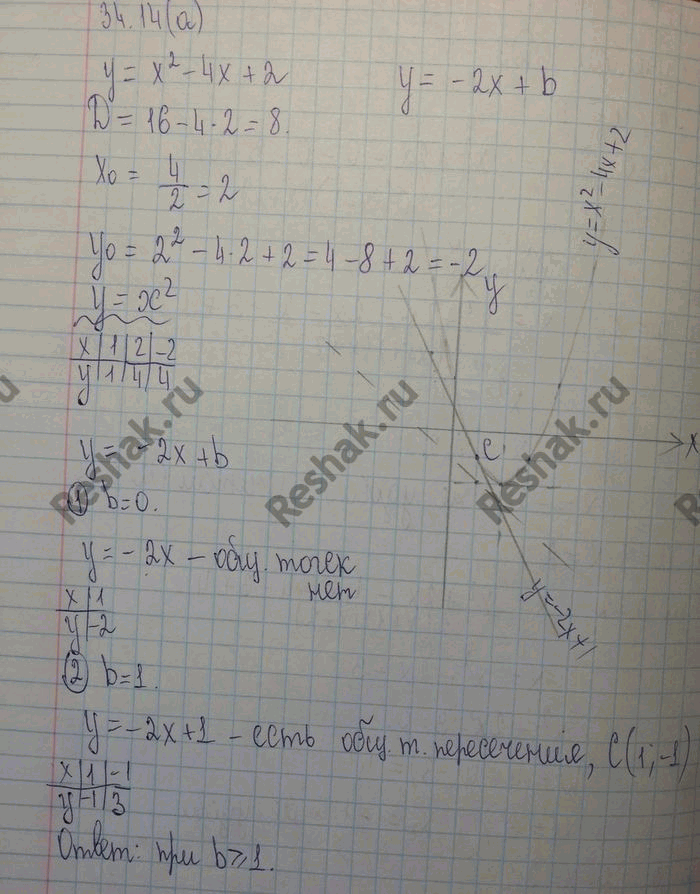 34.14(а)
y = x² - 4x + 2
y = -2x + b
D = 16 - 4·2 = 8.
x₀ = 4/2 = 2
y₀ = 2² - 4·2 + 2 = 4 - 8 + 2 = -2
y = x²
x | 1 | 2 | -2
y | 1 | 4 | 4
y = -2x + b
① b = 0.
y = -2x - общ. точек
нет
x | 1
y | -2
② b = 1.
y = -2x + 1 - есть общ. т. пересечения, C(1; -1)
x | 1 | -1
y | -1 | 3
Ответ: при b ≥ 1.
y
x
C
y = x² - 4x + 2
y = -2x + 1
Reshak.ru
Reshak.ru
Reshak.ru
Reshak.ru